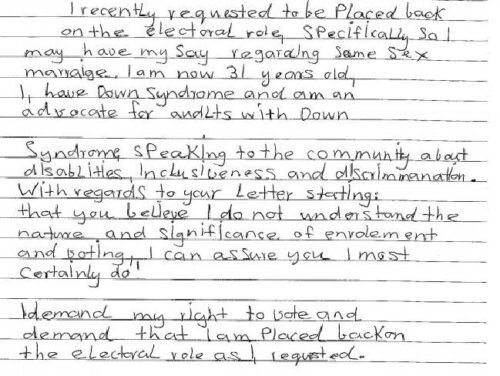 I recently requested to be Placed back
on the electoral role, SPecifically So I
may have my Say regarding Same Sex
marraige. I am now 31 years old,
I, have Down Syndrome and am an
advocate for andLts with Down
Syndrome, SPeaking to the community about
disabLities, inclusiveness and discrimmanation.
With regards to your Letter starting:
that you believe I do not understand the
nature and significance of enrolement
and voting, I can assure you I most
Certainly do!
I demand my right to vote and
demand that I am Placed back on
the electoral role as I requested.